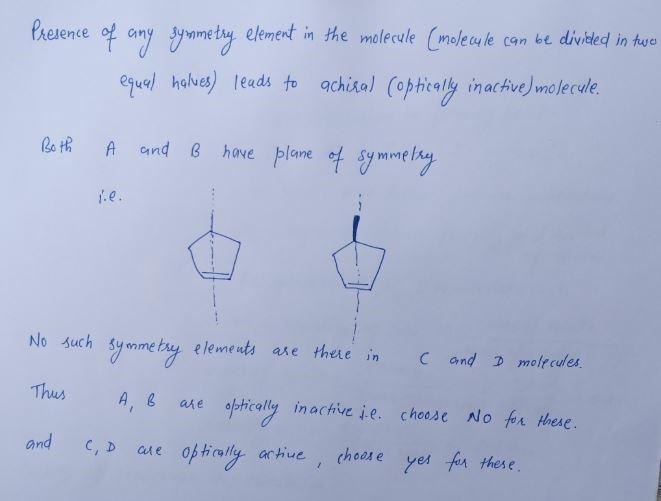 Presence of any symmetry element in the molecule (molecule can be divided in two
equal halves) leads to achiral (optically inactive) molecule.
Both A and B have plane of symmetry
i.e.
No such symmetry elements are there in C and D molecules.
Thus A, B are optically inactive i.e. choose NO for these.
and C, D are optically active, choose yes for these.